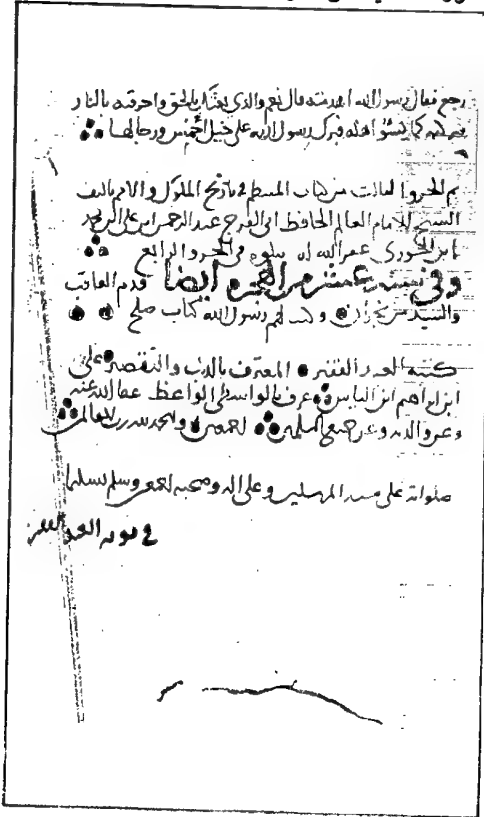 رجع فقال يسول الله اهدمته قال نعم والذي بعثك بالحق واحرقته بالنار
كما يسوا اهله فبرك رسول الله على خيل أحمس ورجالها
تم الجزو الثالث من كتاب المنتظم في تاريخ الملوك والامم تاليف
الشيخ الامام العالم الحافظ ابي الفرج عبد الرحمن ابن علي ابن محمد
ابن الجوزي غفر الله له يتلوه في الجزو الرابع
وفي سنة عشر من الهجره ايضا قدم العاقب
والسيد من نجران وكتب لهم رسول الله كتاب صلح
كتبه العبد الفقير المعترف بالذنب والتقصير علي
ابن ابراهيم ابن الياس عرف بالواسطي الواعظ عفا الله عنه
وعن والديه وعن جميع المسلمين اجمعين والحمد لله رب العالمين
صلواته على سيد المرسلين وعلى اله وصحبه اجمعين وسلم تسليما
في نوبه العبد الفقير